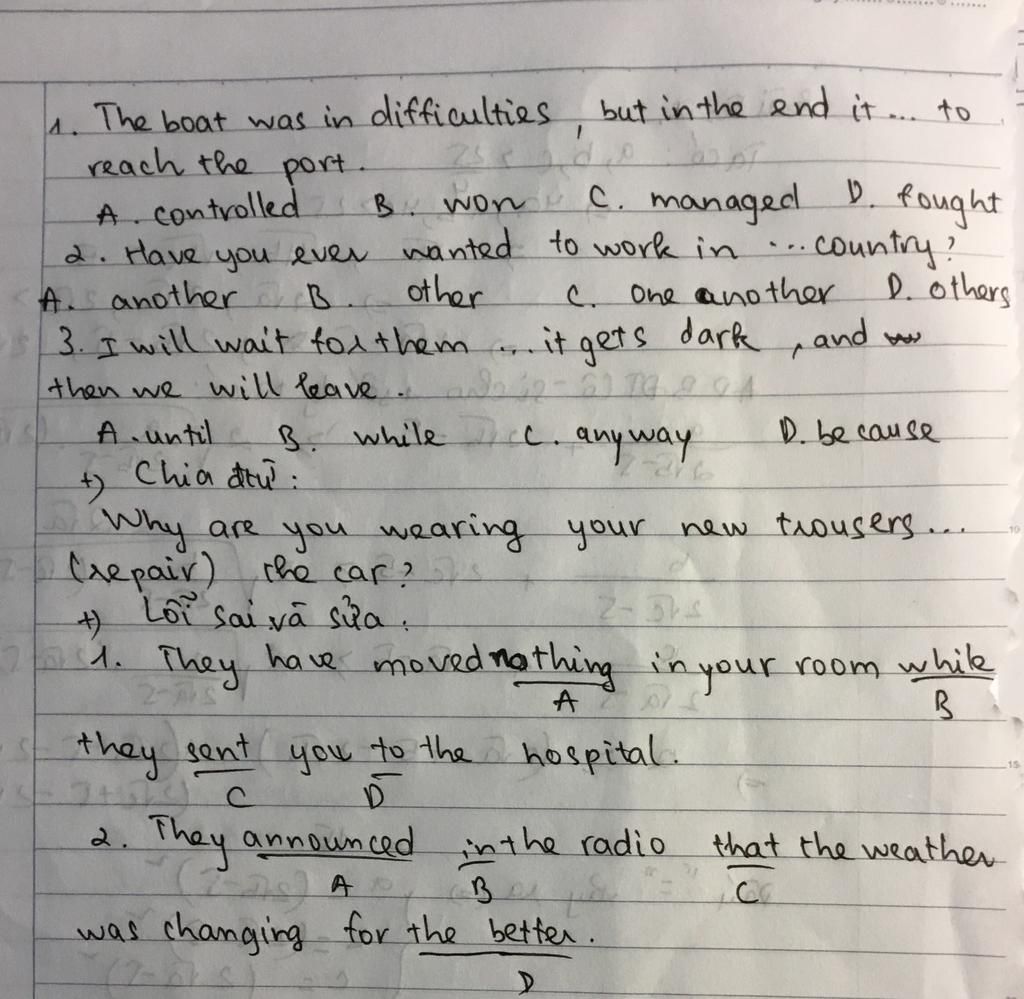 1. The boat was in difficulties, but in the end it ... to
reach the port.
A. controlled B. won C. managed D. fought
2. Have you ever wanted to work in ... country?
A. another B. other C. one another D. others
3. I will wait for them ... it gets dark, and
then we will leave.
A. until B. while C. anyway D. because
+) Chia đtừ:
Why are you wearing your new trousers...
(repair) the car?
+) Lỗi sai và sửa:
1. They have moved nothing in your room while
A B
they sent you to the hospital.
C D
2. They announced in the radio that the weather
A B C
was changing for the better.
D